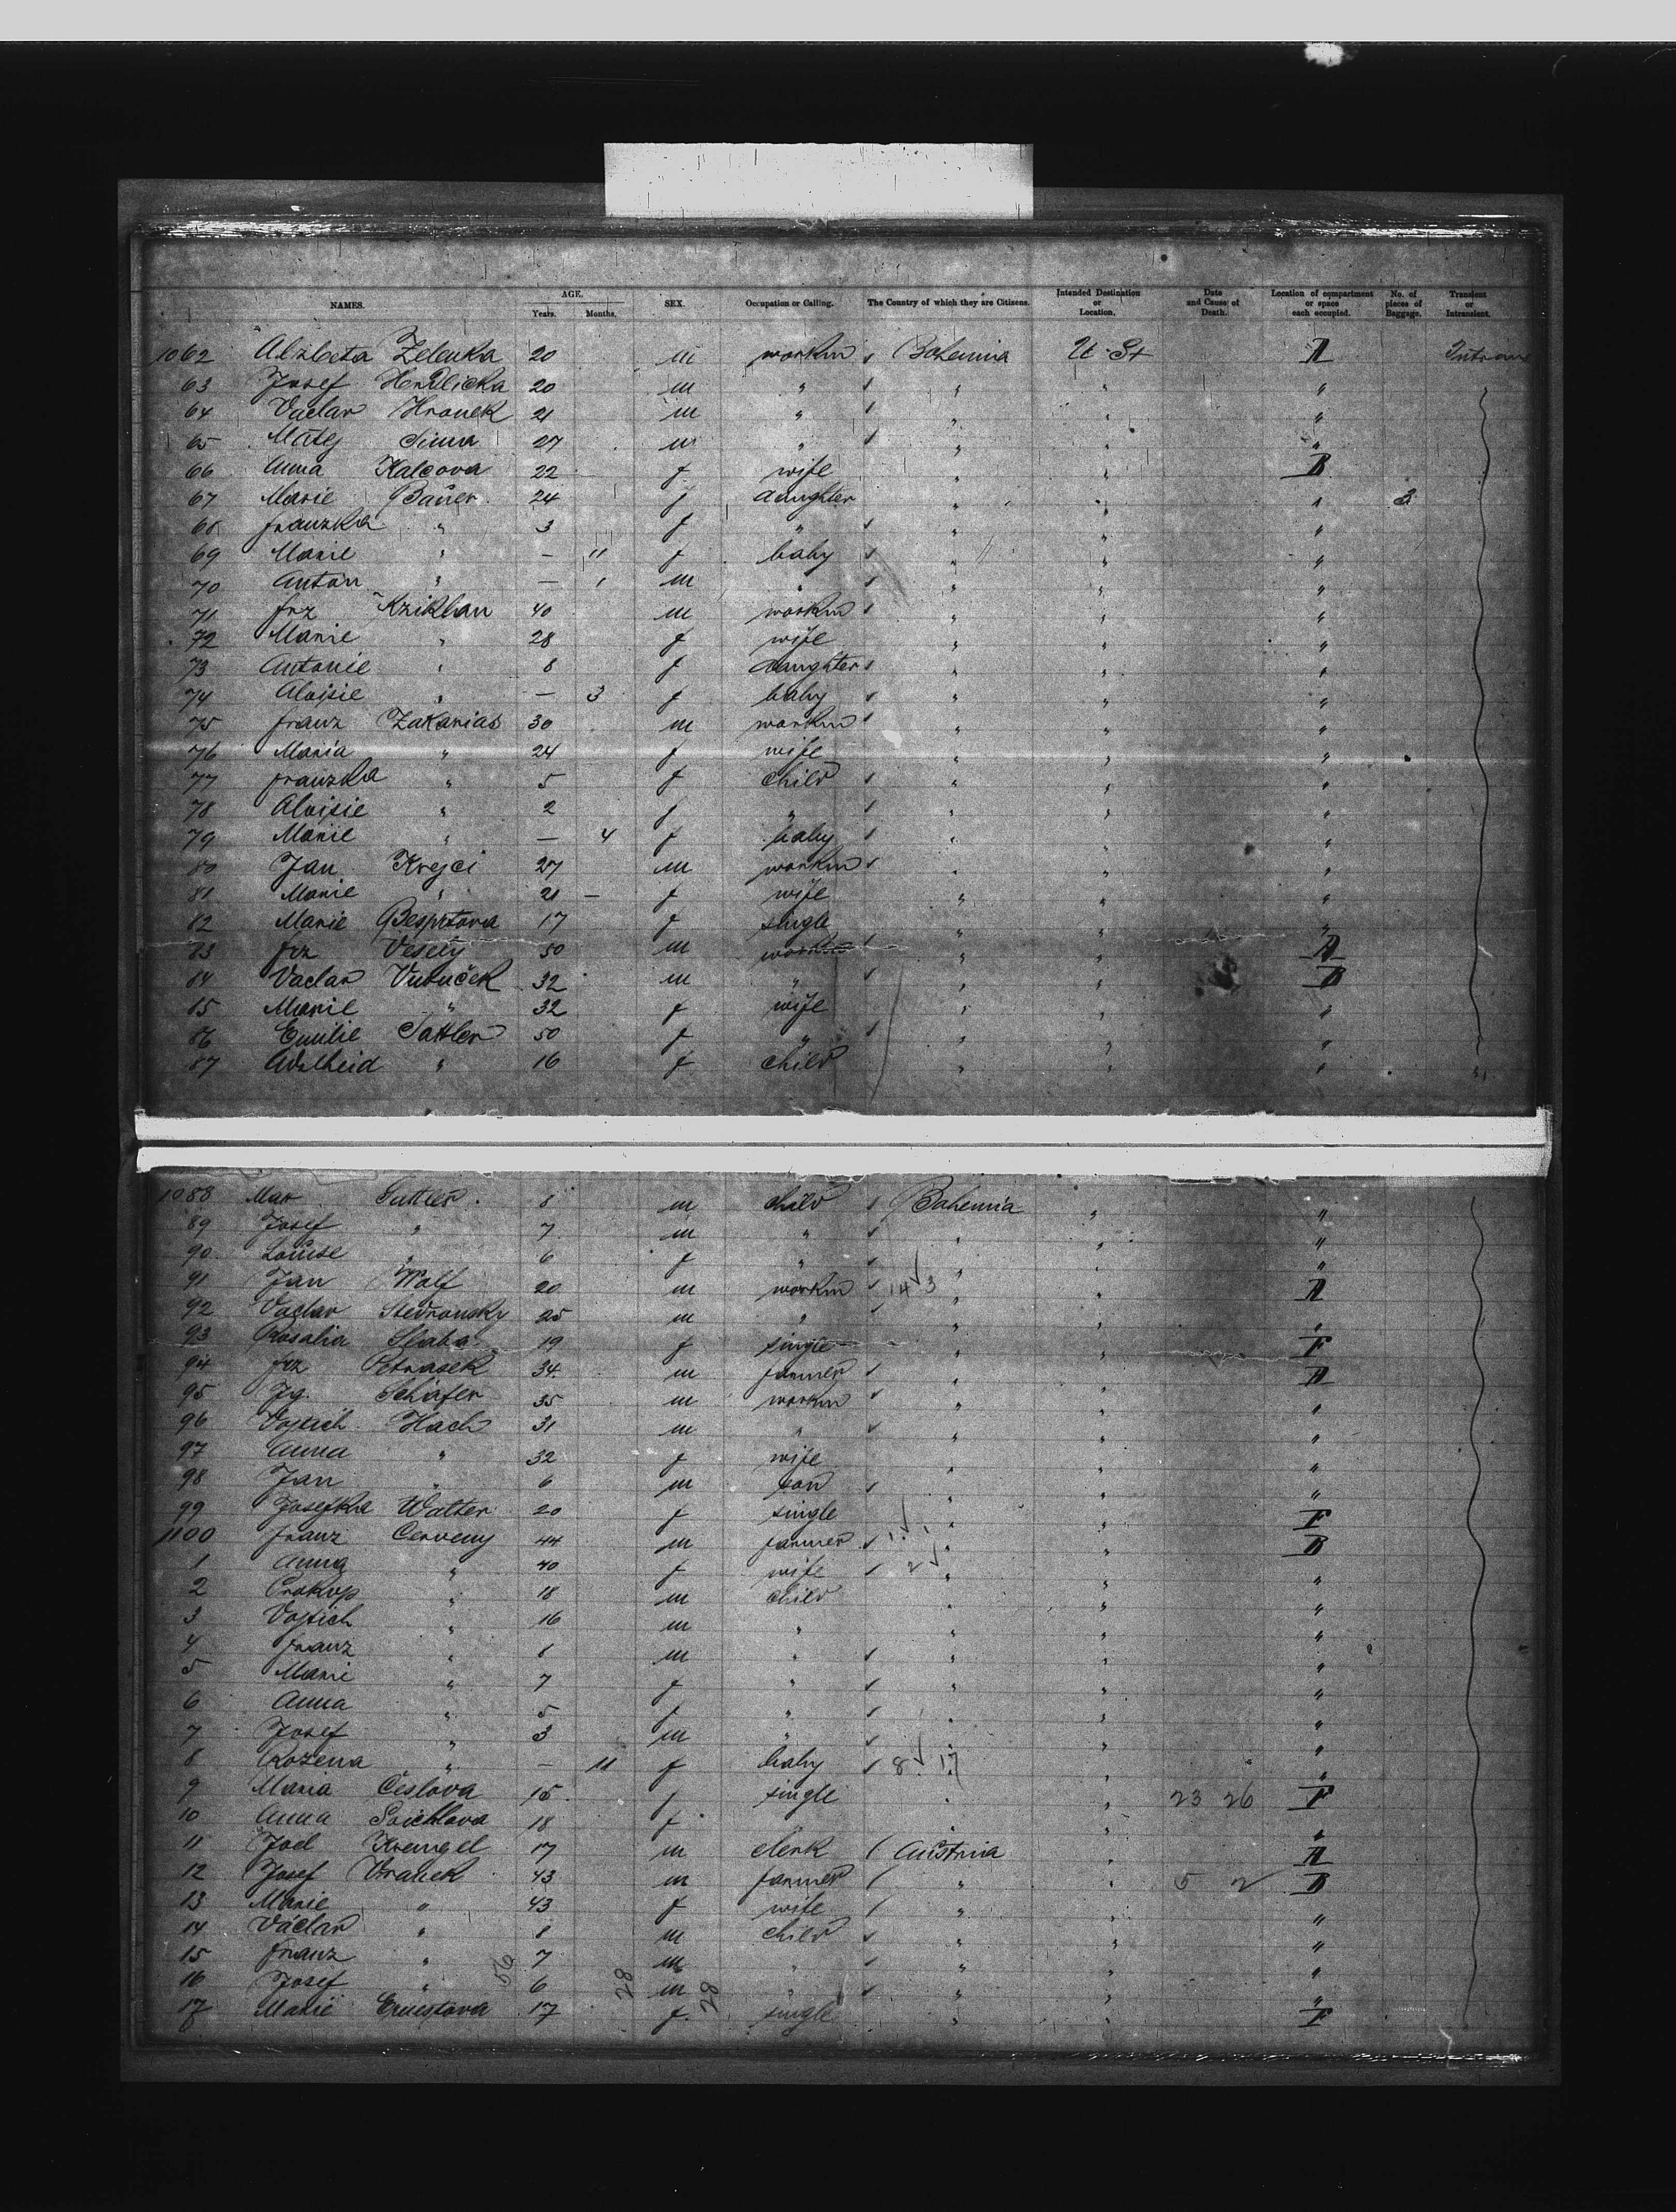 NAMES. AGE. Years. Months. SEX. Occupation or Calling. The Country of which they are Citizens. Intended Destination or Location. Date and Cause of Death. Location of compartment or space each occupied. No. of pieces of Baggage. Transient or Intransient.
1062 Alzbeta Zelenka 20 m workm Bohemia U. St A Intran
63 Josef Hendlicka 20 m " " " "
64 Vaclav Hronek 21 m " " " "
65 Matej Sima 27 m " " " "
66 Anna Kalcova 22 f wife " " B
67 Marie Bauer 24 f daughter " " " 3
68 Franzka " 3 f " " " "
69 Marie " — 11 f baby " " "
70 Anton " — 1 m " " " "
71 Frz Krikhan 40 m workm " " "
72 Marie " 28 f wife " " "
73 Antonie " 8 f daughter " " "
74 Aloisie " — 3 f baby " " "
75 Franz Zakarias 30 m workm " " "
76 Maria " 24 f wife " " "
77 Franzka " 5 f child " " "
78 Aloisie " 2 f " " " "
79 Marie " — 4 f baby " " "
80 Jan Krejci 27 m workm " " "
81 Marie " 21 — f wife " " "
82 Marie Besprtova 17 f single " " "
83 Frz Vesely 50 m workm " " A
84 Vaclav 32 m " " " B
85 Marie " 32 f wife " " "
86 Emilie Sattler 50 f " " " "
87 Adelheid " 16 f child " " " "
1088 Max Suttler 8 m child Bohemia " "
89 Josef " 7 m " " " "
90 Louise " 6 f " " " "
91 Jan Wolf 20 m workm 14 3 " " A
92 Vaclav Stedronsky 25 m " " " "
93 Rosalia Slaba 19 f single " " F
94 Frz Petrasek 34 m farmer " " A
95 Jg. Schäfer 35 m workm " " "
96 Vojtich Hach 31 m " " " "
97 Anna " 32 f wife " " "
98 Jan " 6 m son " " "
99 Josefka Walter 20 f single " " F
1100 Franz Cerveny 44 m farmer " " B
1 Anna " 40 f wife 2 " " "
2 Prokop " 18 m child " " "
3 Vojtich " 16 m " " " "
4 Franz " 8 m " " " "
5 Marie " 7 f " " " "
6 Anna " 5 f " " " "
7 Josef " 3 m " " " "
8 Rozena " — 11 f baby 8 17 " "
9 Maria Ceslova 15 f single " " 23 26 F
10 Anna 18 f " " " "
11 Joel Krengel 17 m clerk Austria " A
12 Josef Vranek 43 m farmer " " 5 2 B
13 Marie " 43 f wife " " "
14 Václav " 8 m child " " "
15 Franz " 7 m " " " "
16 Josef " 6 m " " " "
17 Marie Ernestova 17 f single " " F
56 28 28